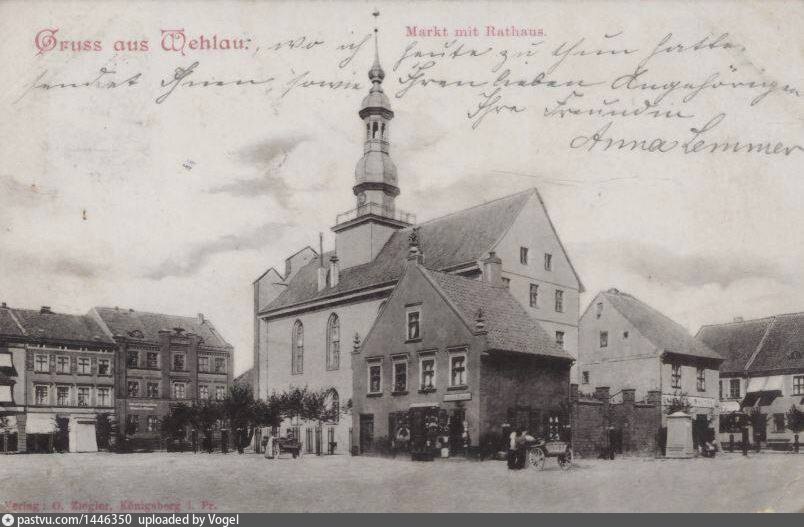 Gruss aus Wehlau, wo ich heute zu thun hatte
Markt mit Rathaus.
sendet Ihnen, sowie Ihren lieben Angehörigen
Ihre Freundin
Anna Lemmer
Verlag: O. Ziegler, Königsberg i. Pr.
pastvu.com/1446350 uploaded by Vogel